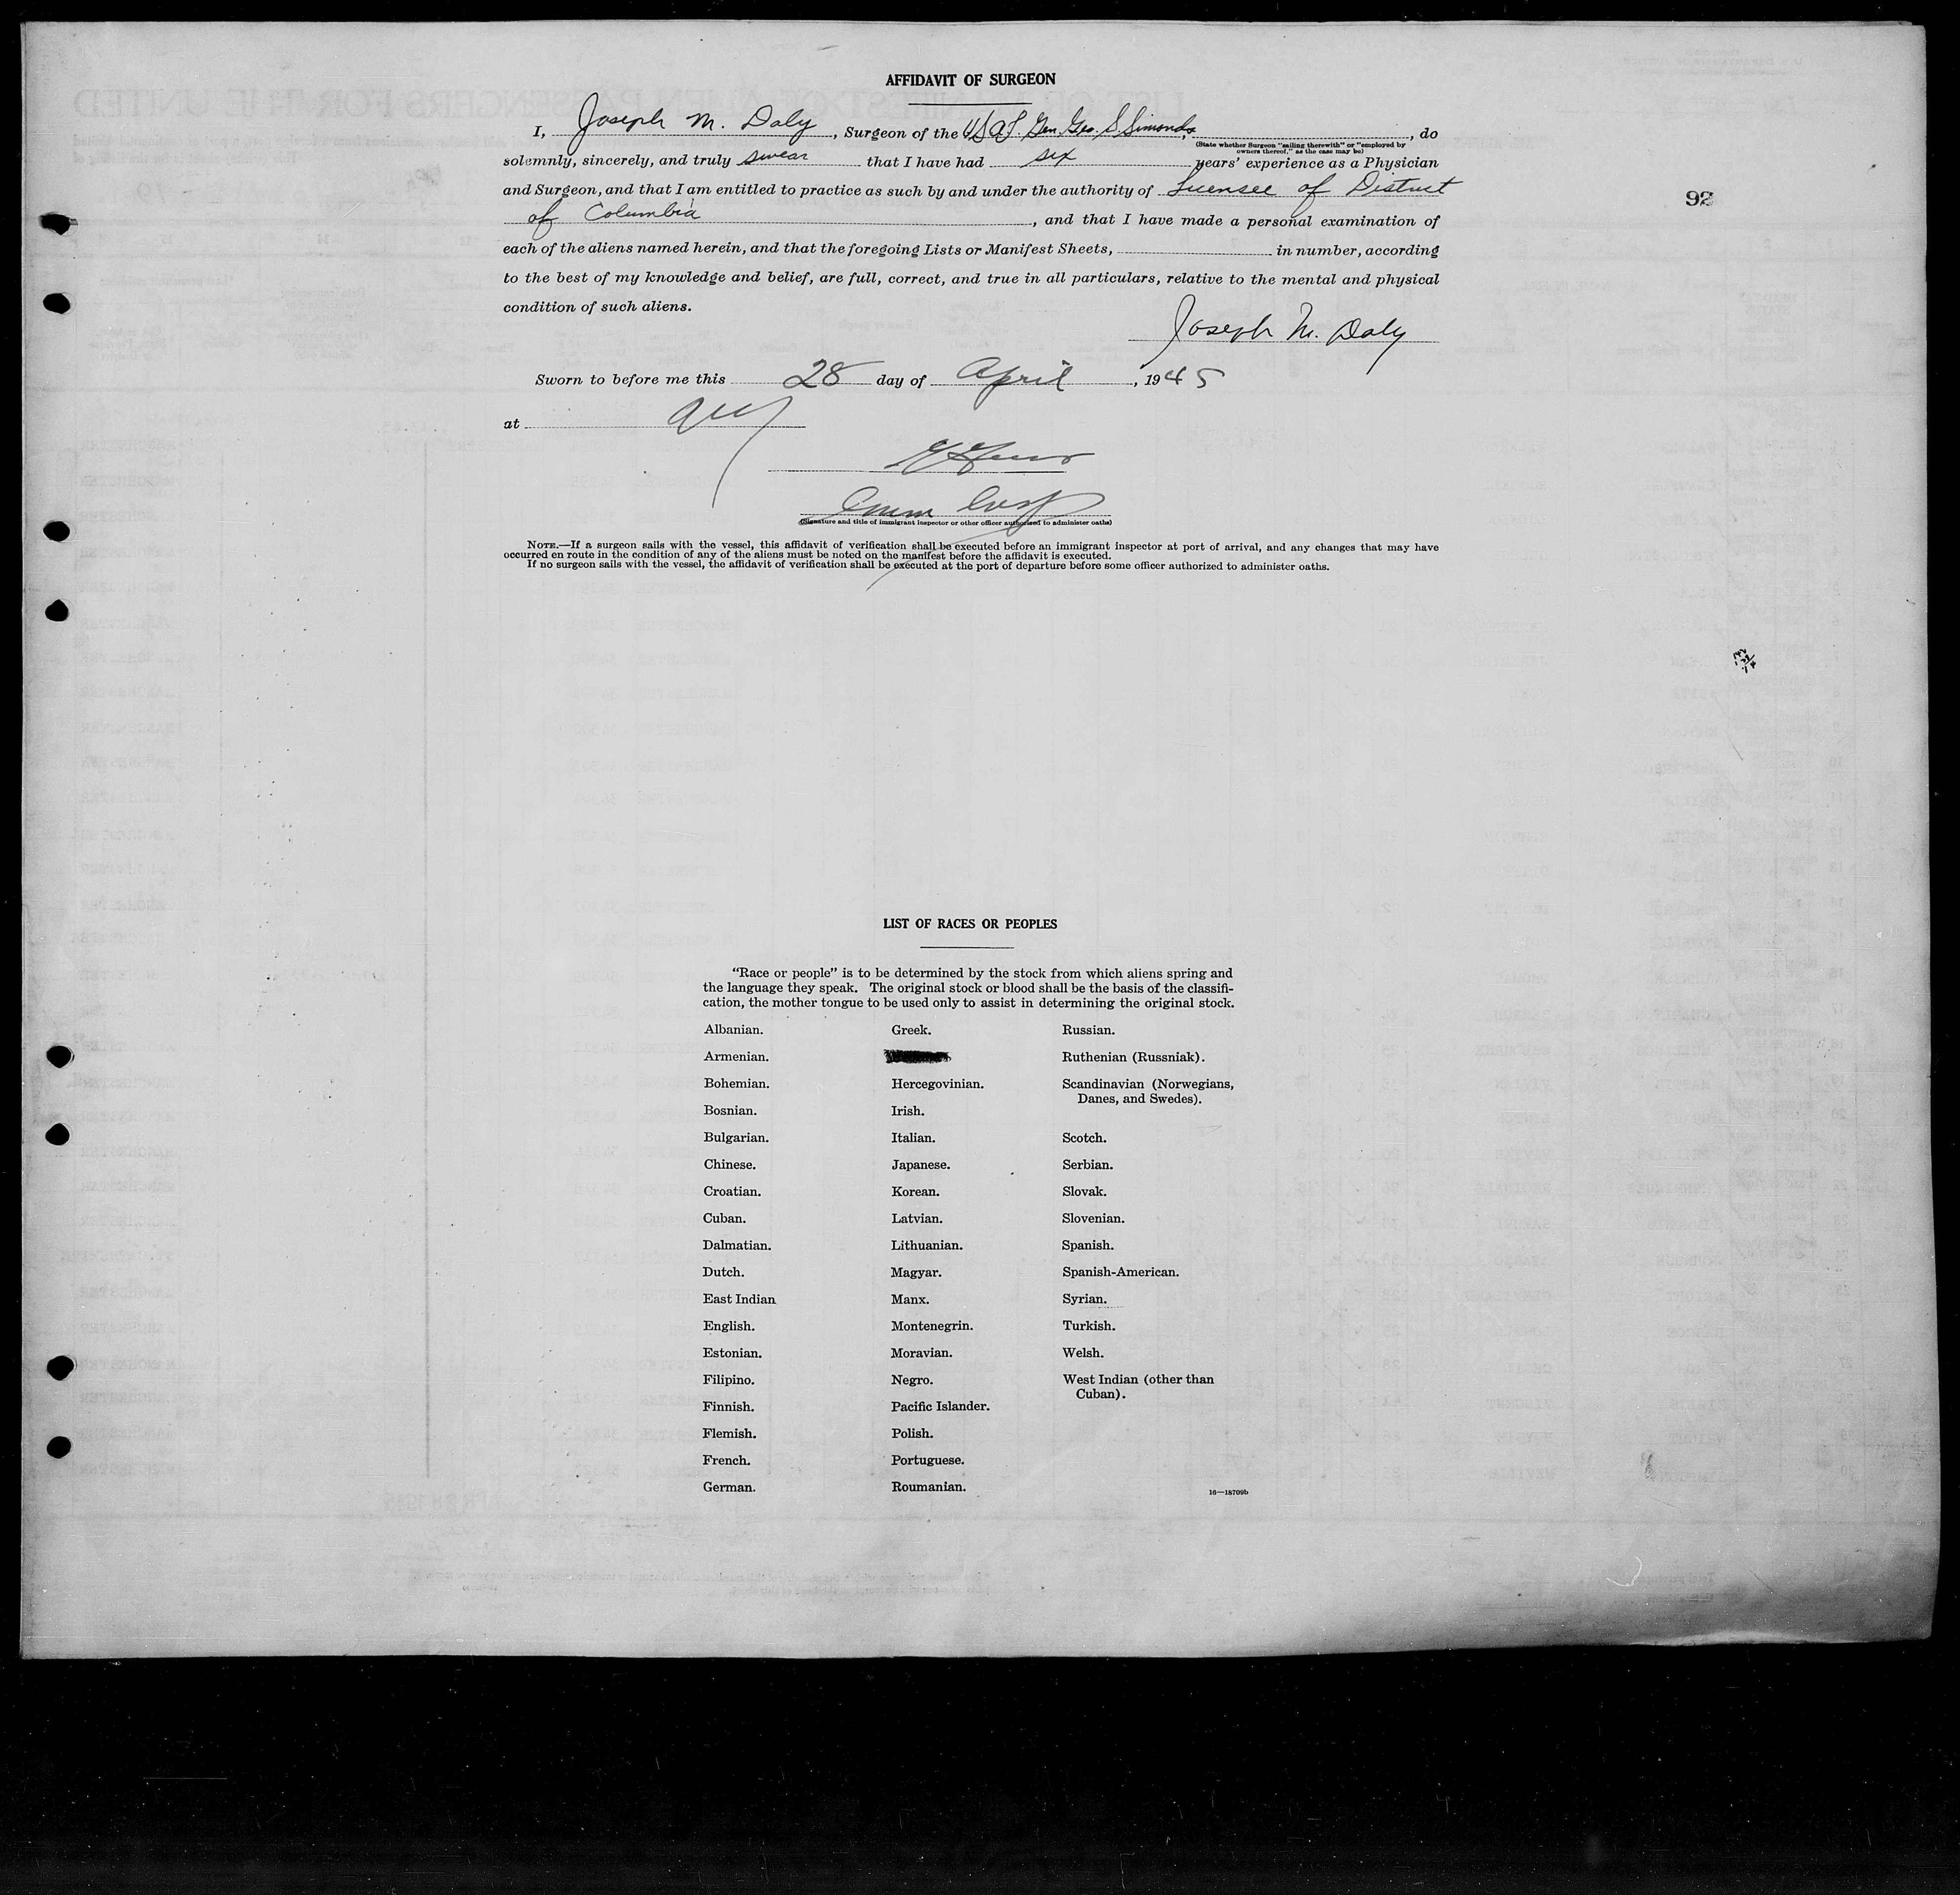 AFFIDAVIT OF SURGEON
I, Joseph M. Daly, Surgeon of the USAT. Gen. Geo. S. Simonds, do
(State whether Surgeon "sailing therewith" or "employed by
owners thereof," as the case may be)
solemnly, sincerely, and truly swear that I have had six years' experience as a Physician
and Surgeon, and that I am entitled to practice as such by and under the authority of Licensee of District
of Columbia, and that I have made a personal examination of
each of the aliens named herein, and that the foregoing Lists or Manifest Sheets, in number, according
to the best of my knowledge and belief, are full, correct, and true in all particulars, relative to the mental and physical
condition of such aliens.
Joseph M. Daly
Sworn to before me this 28 day of April, 1945
at
(Signature and title of immigrant inspector or other officer authorized to administer oaths)
NOTE.—If a surgeon sails with the vessel, this affidavit of verification shall be executed before an immigrant inspector at port of arrival, and any changes that may have
occurred en route in the condition of any of the aliens must be noted on the manifest before the affidavit is executed.
If no surgeon sails with the vessel, the affidavit of verification shall be executed at the port of departure before some officer authorized to administer oaths.
92
LIST OF RACES OR PEOPLES
"Race or people" is to be determined by the stock from which aliens spring and
the language they speak. The original stock or blood shall be the basis of the classifi-
cation, the mother tongue to be used only to assist in determining the original stock.
Albanian.
Armenian.
Bohemian.
Bosnian.
Bulgarian.
Chinese.
Croatian.
Cuban.
Dalmatian.
Dutch.
East Indian
English.
Estonian.
Filipino.
Finnish.
Flemish.
French.
German.
Greek.
Hercegovinian.
Irish.
Italian.
Japanese.
Korean.
Latvian.
Lithuanian.
Magyar.
Manx.
Montenegrin.
Moravian.
Negro.
Pacific Islander.
Polish.
Portuguese.
Roumanian.
Russian.
Ruthenian (Russniak).
Scandinavian (Norwegians,
Danes, and Swedes).
Scotch.
Serbian.
Slovak.
Slovenian.
Spanish.
Spanish-American.
Syrian.
Turkish.
Welsh.
West Indian (other than
Cuban).
16—18709b